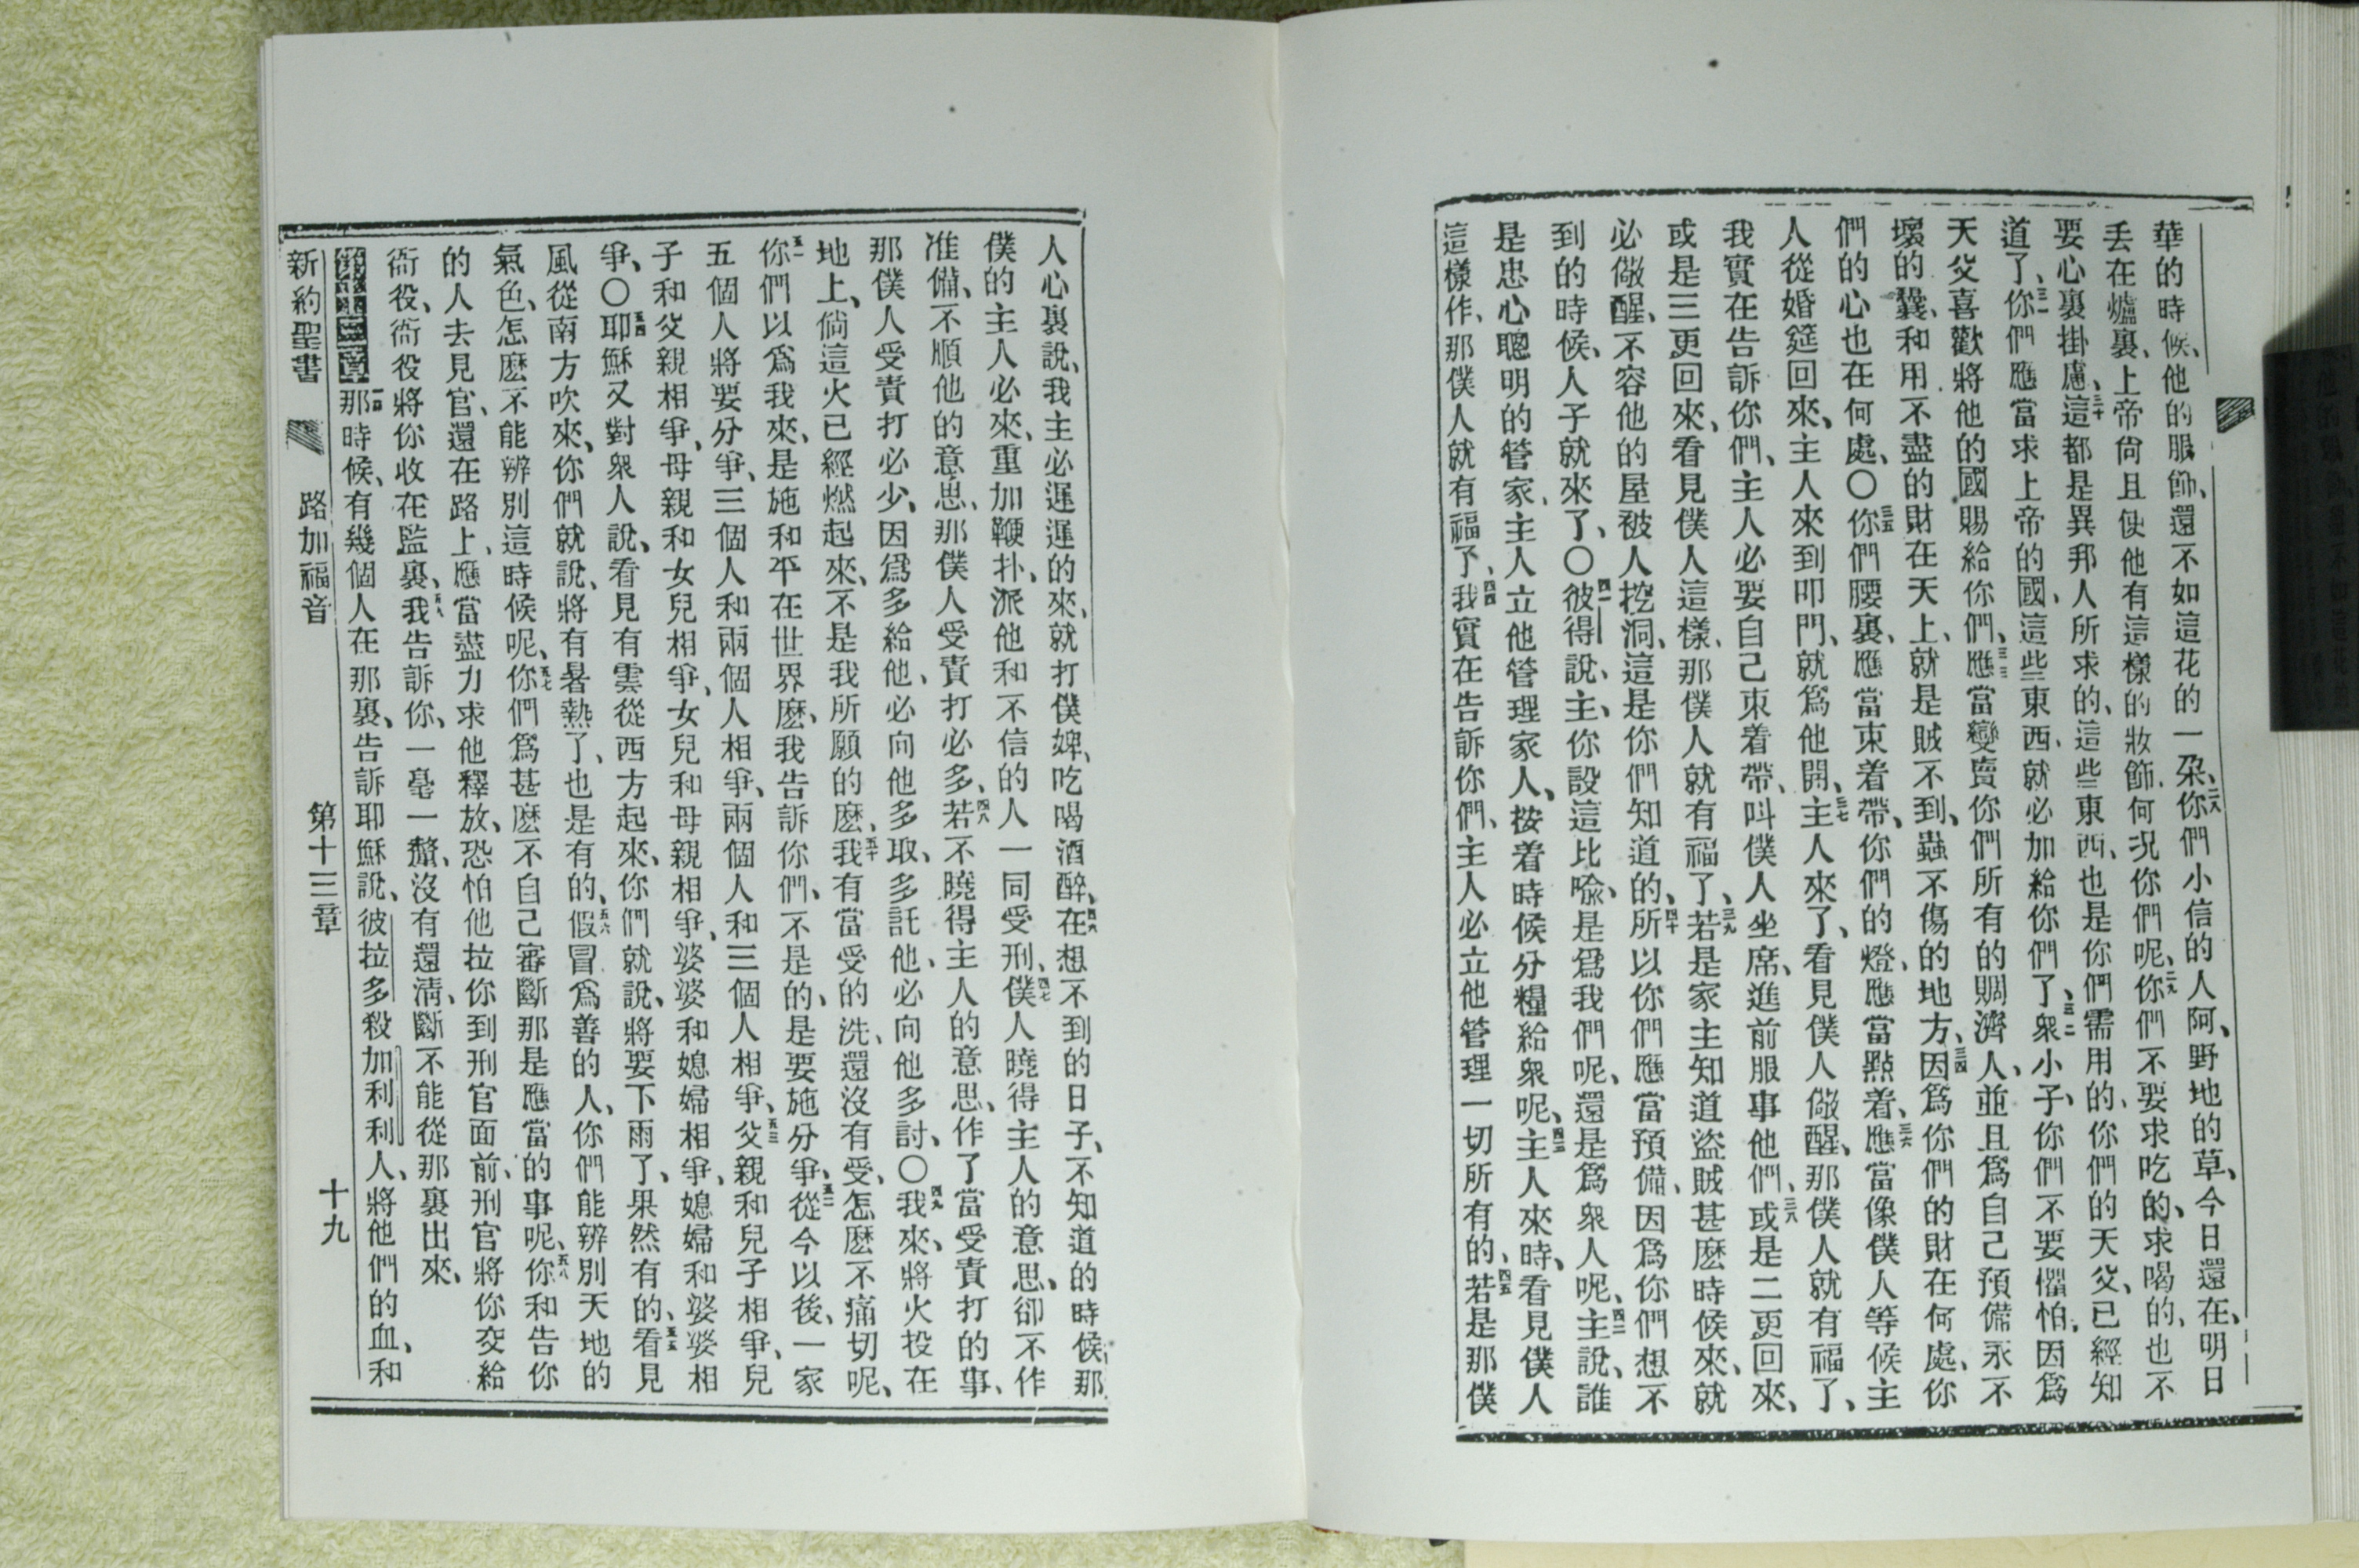 華的時候、他的服飾、還不如這花的一朶、二八你們小信的人阿、野地的草、今日還在、明日
丢在爐裏、上帝尙且使他有這樣的妝飾、何況你們呢、二九你們不要求吃的、求喝的、也不
要心裏掛慮、三十這都是異邦人所求的、這些東西、也是你們需用的、你們的天父、已經知
道了、三一你們應當求上帝的國、這些東西、就必加給你們了、三二衆小子、你們不要懼怕、因爲
天父喜歡將他的國賜給你們、三三應當變賣你們所有的賙濟人、並且爲自己預備永不
壞的囊、和用不盡的財在天上、就是賊不到、蟲不傷的地方、三四因爲你們的財在何處、你
們的心也在何處、〇三五你們腰裏、應當束着帶、你們的燈、應當點着、三六應當像僕人等候主
人從婚筵回來、主人來到叩門、就爲他開、三七主人來了、看見僕人儆醒、那僕人就有福了、
我實在吿訴你們、主人必要自己束着帶、叫僕人坐席、進前服事他們、三八或是二更回來、
或是三更回來、看見僕人這樣、那僕人就有福了、三九若是家主知道盜賊甚麽時候來、就
必儆醒、不容他的屋被人挖洞、這是你們知道的、四十所以你們應當預備、因爲你們想不
到的時候、人子就來了、〇四一彼得說、主、你設這比喩、是爲我們呢、還是爲衆人呢、四二主說、誰
是忠心聰明的管家、主人立他管理家人、按着時候分糧給衆呢、四三主人來時、看見僕人
這樣作、那僕人就有福了、四四我實在吿訴你們、主人必立他管理一切所有的、四五若是那僕
人心裏說、我主必遲遲的來、就打僕婢、吃喝酒醉、四六在想不到的日子、不知道的時候、那
僕的主人必來、重加鞭扑、派他和不信的人一同受刑、四七僕人曉得主人的意思、卻不作
准備、不順他的意思、那僕人受責打必多、四八若不曉得主人的意思、作了當受責打的事、
那僕人受責打必少、因爲多給他、必向他多取、多託他、必向他多討、〇四九我來、將火投在
地上、倘這火已經燃起來、不是我所願的麽、五十我有當受的洗、還沒有受、怎麽不痛切呢、
五一你們以爲我來、是施和平在世界麽、我吿訴你們、不是的、是要施分爭、五二從今以後、一家
五個人將要分爭、三個人和兩個人相爭、兩個人和三個人相爭、五三父親和兒子相爭、兒
子和父親相爭、母親和女兒相爭、女兒和母親相爭、婆婆和媳婦相爭、媳婦和婆婆相
爭、〇五四耶穌又對衆人說、看見有雲從西方起來、你們就說、將要下雨了、果然有的、五五看見
風從南方吹來、你們就說、將有暑熱了、也是有的、五六假冒爲善的人、你們能辨別天地的
氣色、怎麽不能辨別這時候呢、五七你們爲甚麽不自己審斷那是應當的事呢、五八你和吿你
的人去見官、還在路上、應當盡力求他釋放、恐怕他拉你到刑官面前、刑官將你交給
衙役、衙役將你收在監裏、五九我吿訴你、一毫一釐、沒有還淸、斷不能從那裏出來、
第十三章一那時候、有幾個人在那裏、吿訴耶穌說、彼拉多殺加利利人、將他們的血、和
新約聖書 路加福音 第十三章 十九